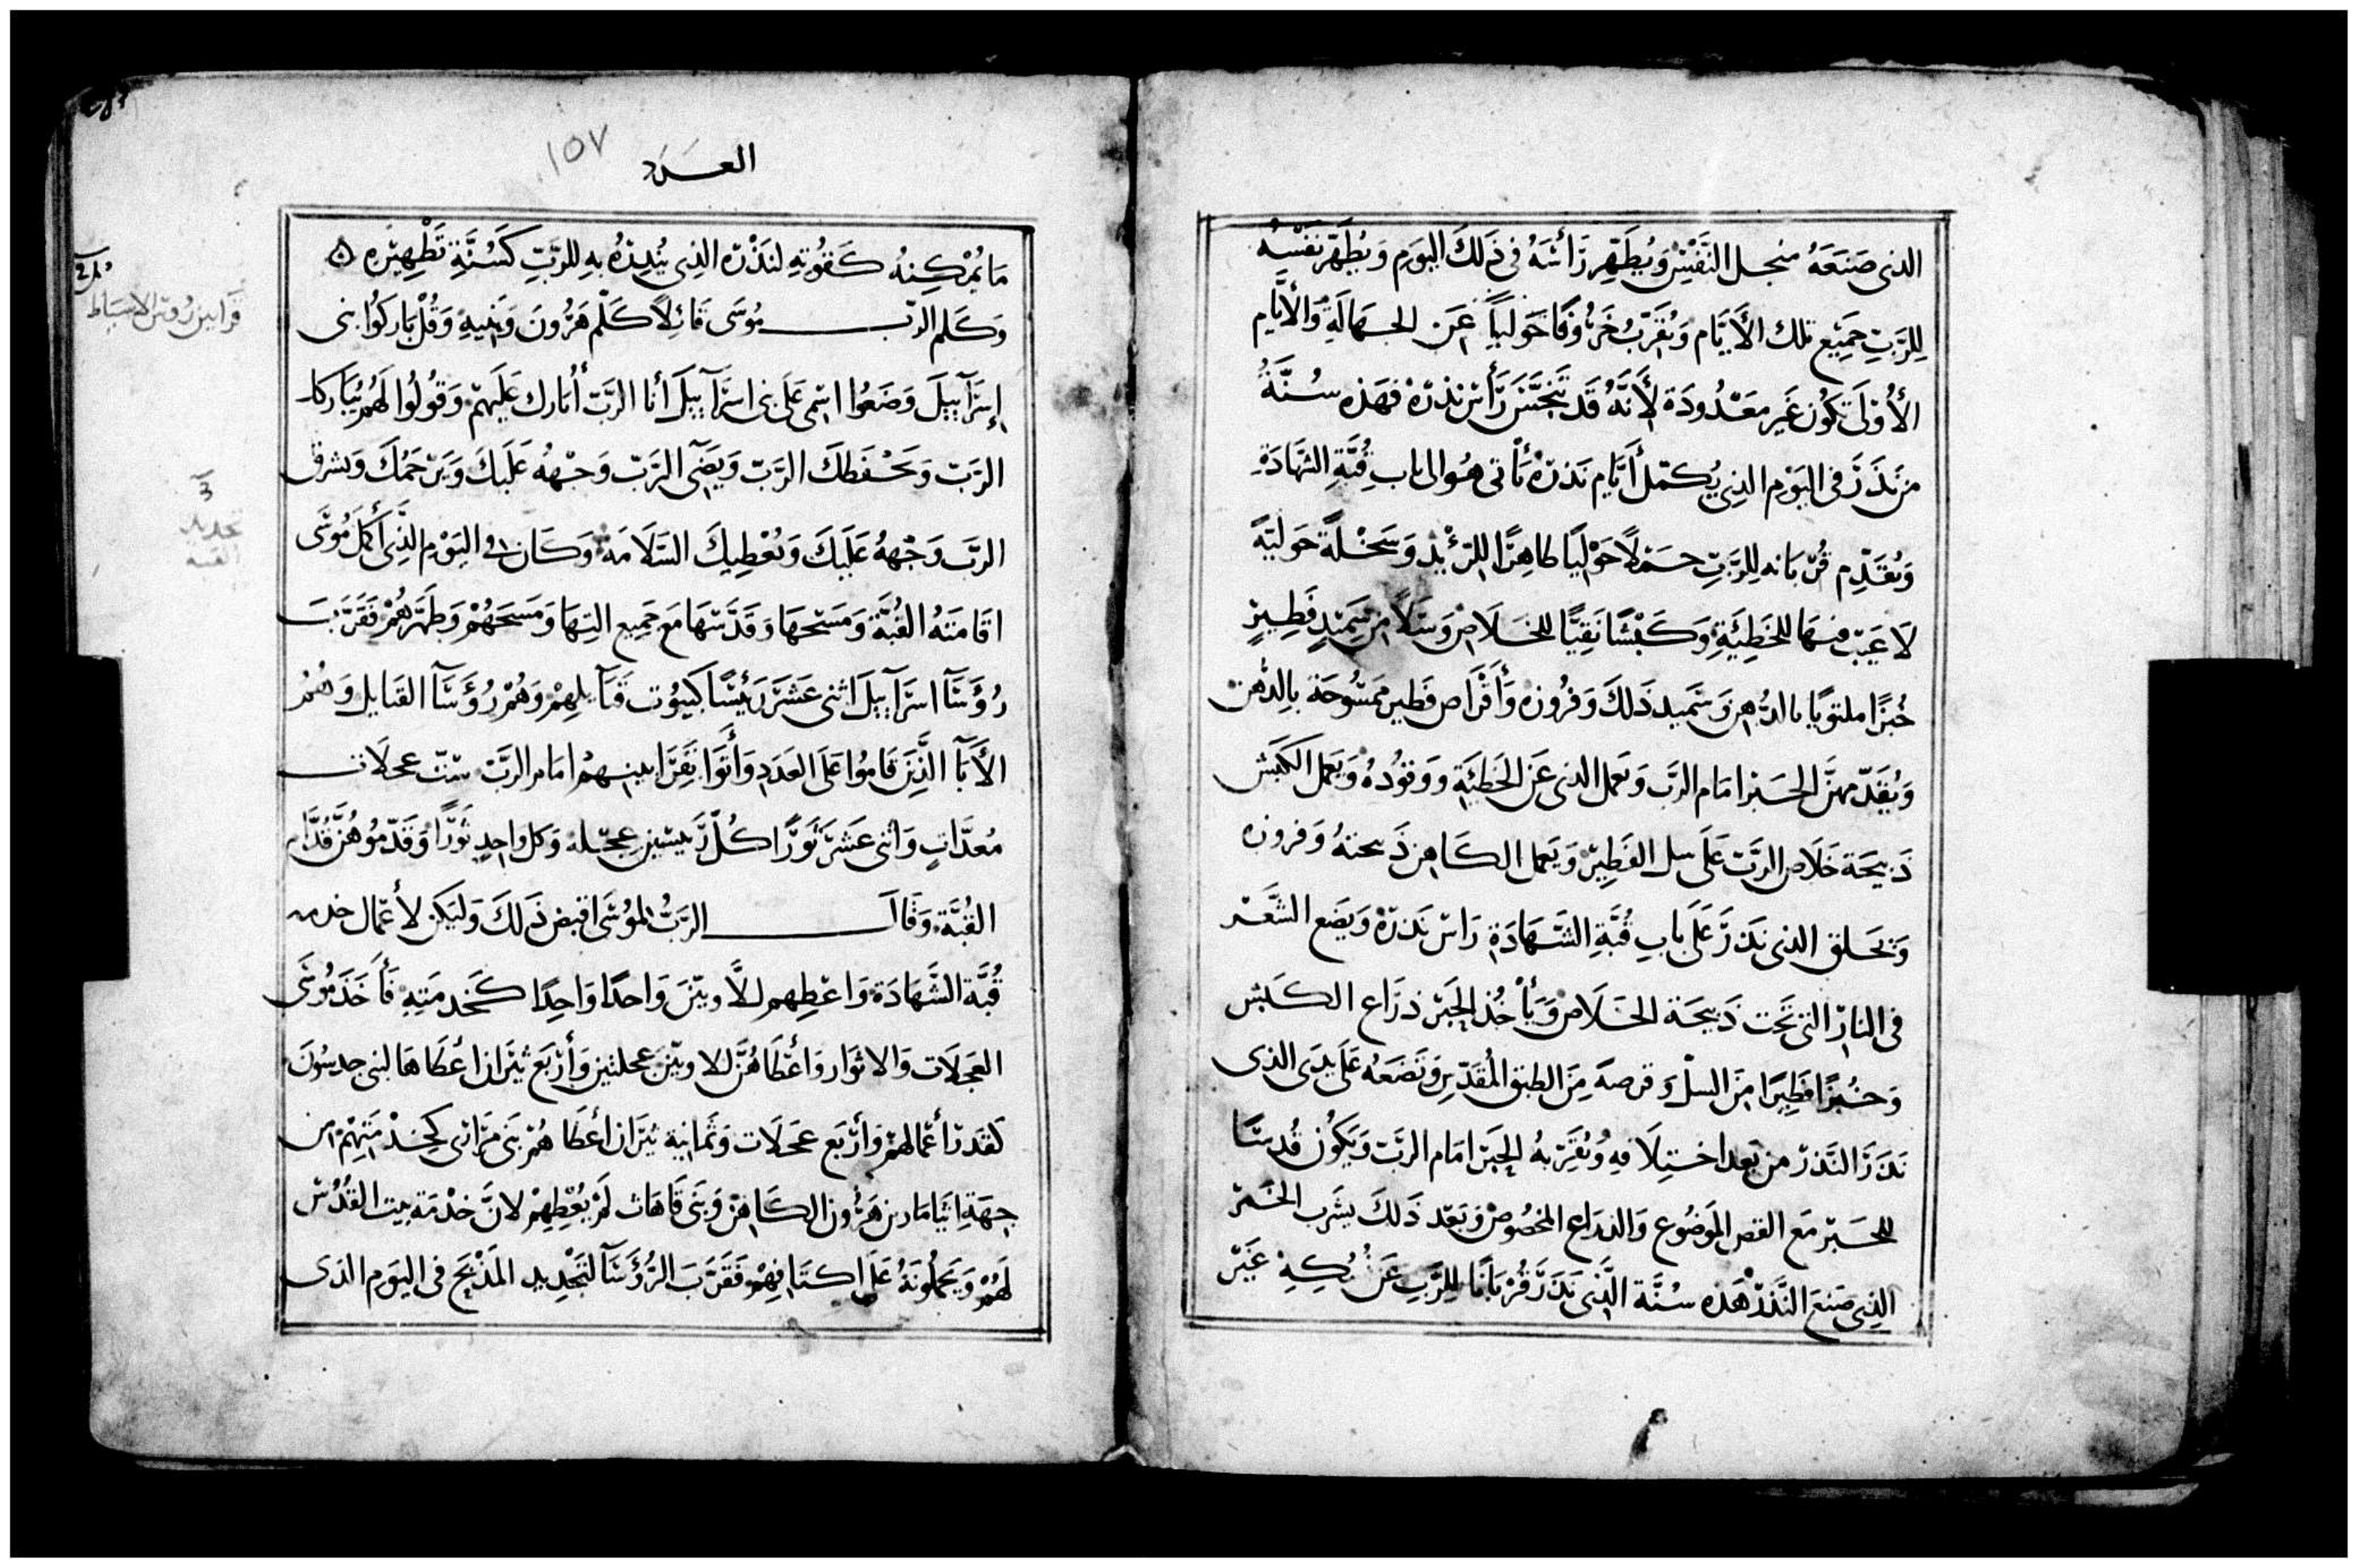 الذى صَنَعَهُ مِنجل النَّفْسِ وَيُطَهِّر رَأْسَهُ فى ذَلكَ اليَوم وَيُطَهِّر نَفْسَهُ
لِلرَّبِّ جَمِيْع تلك الأَيَّام وَيُقَرِّبُ خَرُوفًا حَولياً عَن الجهَالَةِ وَالأَيَّام
الأُوْلَى تَكُون غَير مَعْدُودَة لأَنَّهُ قَد تَنَجَّسَ رَأْس نذرهْ فهَذه سُنَّةُ
مَن نَذَرَ فى اليَوْم الذِى يُكمّل أَيَّام نَذرهْ يَأتى هُو الى باب قُبَّةِ الشَّهَادَةِ
وَيُقَدّم قُربَانه لِلرَّبِّ حَمَلاً حَوْلِيًا طاهِرًا للرّ وَسَخْلَةً حَوليَّةً
لَا عَيْبَ فيهَا للخَطِيَّةِ وَكَبْشًا نَقِيًّا للخَلَاص وَسَلاً من سَمِيْدٍ فَطِيرٍ
خُبْزًا ملتوتًا بالدُّهن وَسَميد ذَلكَ وَفروزه وَأَقْرَاص فَطير مَمْسُوحَة بِالدُّهن
وَيُقَدّمهنَّ الحَبْر امَام الرَّب وَيَعمل الذى عَن الخَطِيَّةِ وَوَقُودُهُ وَيَعمل الكَبْش
ذَبيْحَة خَلَاص الرَّبّ عَلَى سل الفَطِيْر وَيَعمل الكَاهن ذَبيحته وَفروزه
وَيَحلق الذى نَذَرَ عَلَى بَابِ قُبَّةِ الشَّهَادَةِ رَاس نَذرهْ وَيَضَع الشَّعر
فى النار التى تَحت ذَبيحَة الخَلَاص وَيَأْخُذ الحَبْر ذرَاع الكَبش
وَخُبْزًا فَطِيرًا مِنَ السلّ وَقرصه مِنَ الطبق المُقَدّس وَتَضَعَهُ عَلَى يدَى الذى
نَذَرَ النَّذر من بَعد احْتِلَاقِهِ وَيُقَرِّبهُ الحَبْر امَام الرَّبّ وَيَكُون قُدسًا
للحَبْر مَع القص المَوضُوع وَالذراع المخصُوص وَبَعْد ذَلكَ يشرَب الخَمْر
الذِى صَنعَ النَّذْر هَذه سُنَّة الَّذى نَذَرَ قُرْبَانًا لِلرَّبِّ عَن غَيْر
العَدَد
١٥٧
مَا يُمْكِنهُ كَقُوَّتهِ لنَذْره الذِى يُنذِرُهُ بهِ للرَّبِّ كَسُنَّةِ تَطْهِيْره ۞
وَكَلم الرّب مُوسَى قَائِلاً كَلِّم هَرُونَ وَبَنِيهِ وَقُلْ بَارَكُوا بنى
إسرَآييلَ وَضَعُوا اسْمى عَلَى بنى اسرَآييلَ أنا الرَّبّ أُبَارك عَلَيهمْ وَقُولُوا لَهُمْ يُبَاركك
الرَّبّ وَيَحْفَظكَ الرَّبّ وَيَضىء الرَّبّ وَجْهُهُ عَلَيكَ وَيَرْحَمُكَ وَيشرق
الرَّب وَجْهَهُ عَلَيكَ وَيُعْطِيكَ السَّلَامَة وَكَان فى اليَوْم الذِى أَكْمَلَ مُوسَى
اقَامَتهُ القُبَّة وَمَسَحهَا وَقَدَّسهَا مَع جَميع التهَا وَمَسَحَهُمْ وَطَهَّرَهُمْ فَقَرَّبَ
رُؤَسَآ اسرَآييلَ اثنى عَشَر رَئيْسًا كبيُوت قَبَآيلهِمْ وَهُمْ رُؤَسَآ القبَايل وَهُمُ
الأَبَآ الَّذِينَ قَامُوا عَلَى العَدَدِ وَأَتَوا بقَرَابينهمْ امَام الرَّبّ ستّ عجلَات
مُعدَّاتٍ وَاثنى عَشَر ثَوْرًا كُلّ رَئيسَين عِجْلة وَكل واحِدٍ ثَوْرًا وَقَدّمُوهُنَّ قُدَّام
القُبَّة وَقَالَ الرَّبُّ لمُوسَى اقبض ذَلكَ وَليَكن لأعْمَال خدمه
قُبَّة الشَّهَادَة وَاعْطِهم للَّاويّيْنَ وَاحدًا وَاحِدًا كَخدمَتِهِ فَأَخَذَ مُوسَى
العَجَلَات وَالاثوَار وَأَعْطَاهُنَّ للاويّين عجلتين وَأَرْبَع ثيرَان أعْطَاهَا لبنى جدسُونَ
كقَدر أعْمَالهمْ وَأرْبَع عَجَلَات وَثَمَانِية ثيرَان أعْطَاهُمْ بَنى مَرَارى كخِدْمَتِهِمْ من
جِهَةِ ايثَامَار بن هَرُون الكَاهنْ وَبَنى قَاهَات لَمْ يُعْطِهِمْ لانَّ خدْمَة بيت القُدْس
لَهُمْ وَيَحملُونَهُ عَلَى اكتَافِهِمْ فَقَرَّبَ الرُّؤَسَآ لتَجْدِيد المَذْبَحَ فى اليَوم الذى
قَرَابين رُوس الاسبَاط
تجديد
القبه